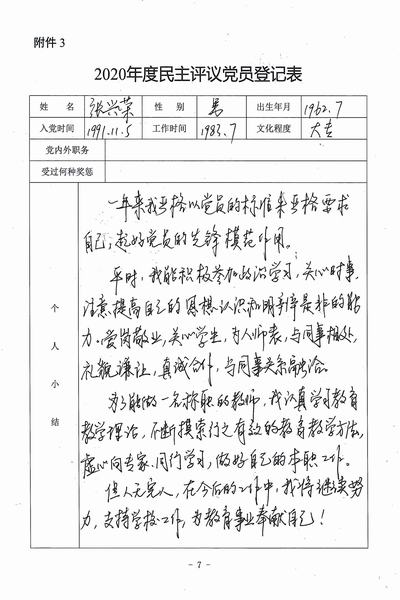 附件 3
2020年度民主评议党员登记表
姓 名 张兴荣 性 别 男 出生年月 1962.7
入党时间 1991.11.5 工作时间 1983.7 文化程度 大专
党内外职务
受过何种奖惩
个人小结
一年来我严格以党员的标准来严格要求
自己，起好党员的先锋模范作用。
平时，我能积极参加政治学习，关心时事，
注意提高自己的思想认识和明辨是非的能
力。爱岗敬业，关心学生，为人师表，与同事相处，
礼貌谦让，真诚合作，与同事关系融洽。
为了能做一名称职的教师，我认真学习教育
教学理论，不断摸索行之有效的教育教学方法，
虚心向专家、同行学习，做好自己的本职工作。
但人无完人，在今后的工作中，我将继续努
力，支持学校工作，为教育事业奉献自己！
- 7 -